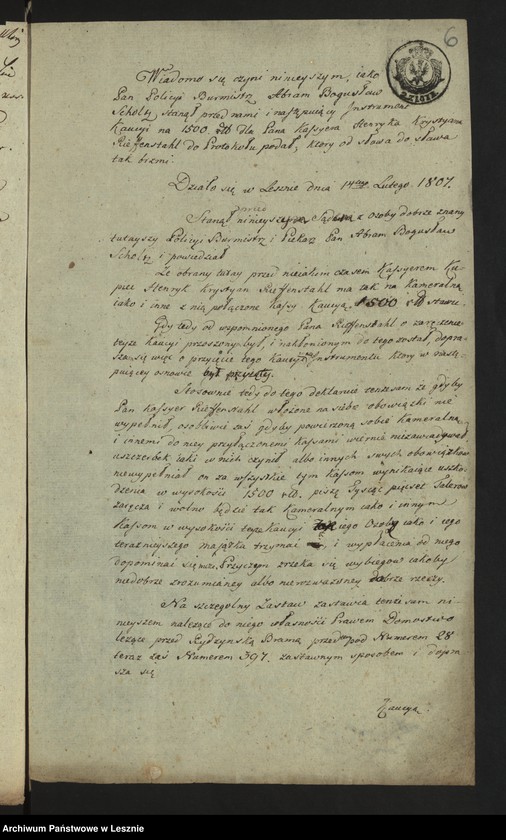 6
2 ZŁOTE
Wiadomo się czyni ninieyszym, iako
Pan Policyi Burmistrz Abram Bogusław
Scholtz stanął przed nami i następuiący Instrument
Kaucyi na 1500 rtl. dla Pana Kassyera Henryka Krystyana
Rieffenstahl do Protokołu podał, który od słowa do słowa
tak brzmi.
Działo się w Lesznie dnia Lutego 1807.
Stanął przed ninieyszym Sądem z Osoby dobrze znany
tutayszy Policyi Burmistrz i Piekarz Pan Abram Bogusław
Scholtz i powiedział
Że obrany tutay przed nieiakim czasem Kassyerem Ku-
piec Henryk Krystyan Rieffenstahl ma tak na Kameralną
iako i inne z nią połączone kassy Kaucyą 1500 rtl stawić.
Gdy tedy od wspomnionego Pana Rieffenstahl o zaręczenie
teyże kaucyi proszonym był, i nakłonionym do tego został, dopra-
sza się więc o przyięcie tego Instrumentu który w nastę-
puiącey osnowie był przyięty.
Stosownie tedy do tego deklaruie tenże sam że gdyby
Pan Kassyer Rieffenstahl włożone na siebie obowiązki nie
wypełnił, osobliwie zaś gdyby powierzoną sobie Kameralną
i innemi do niey przyłączonemi kassami wiernie niezawiadywał
uszczerbek iaki w nich czynił albo innych swych obowiązków
niewypełniał on za wszystkie tym kassom wynikaiące uszko-
dzenia w wysokości 1500 rtl. piszę Tysiąc pięćset Talerów
zaręcza i wolno będzie tak kameralnym iako i innym
kassom w wysokości teyże kaucyi iego Osoby iako i iego
teraznieyszego maiątku trzymać i wypłacenia od niego
dopominać się. Przyczym zrzeka się wybiegów iakoby
niedobrze zrozumianey albo nierozważoney dobrze rzeczy.
Na szczególny Zastaw zastawia tenże sam ni-
nieyszem należące do niego własności Prawem Domostwo
leżące przed Rydzyńską Bramą przed tym pod Numerem 28
teraz zaś Numerem 397. zastawnym sposobem i dopra-
sza się
Kaucya
Archiwum Państwowe w Lesznie